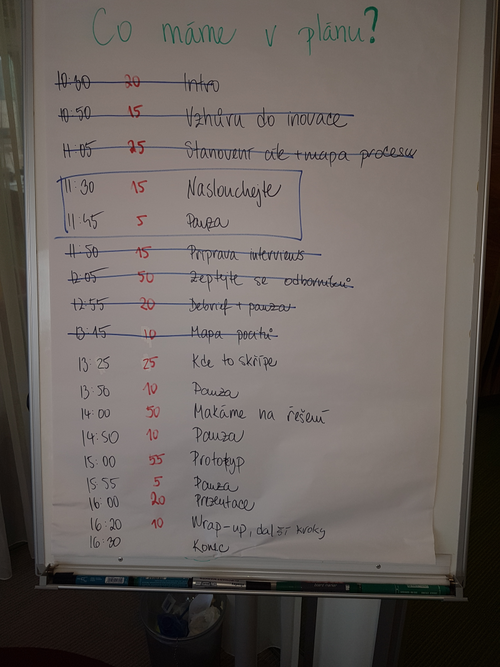 Co máme v plánu?
10:30 20 Intro
10:50 15 Vzhůru do inovace
11:05 25 Stanovení cíle + mapa procesu
11:30 15 Naslouchejte
11:45 5 Pauza
11:50 15 Příprava interviews
12:05 50 Zeptejte se odborníků
12:55 20 Debrief + pauza
13:15 10 Mapa pocitů
13:25 25 Kde to skřípe
13:50 10 Pauza
14:00 50 Makáme na řešení
14:50 10 Pauza
15:00 55 Prototyp
15:55 5 Pauza
16:00 20 Prezentace
16:20 10 Wrap-up, další kroky
16:30 Konec